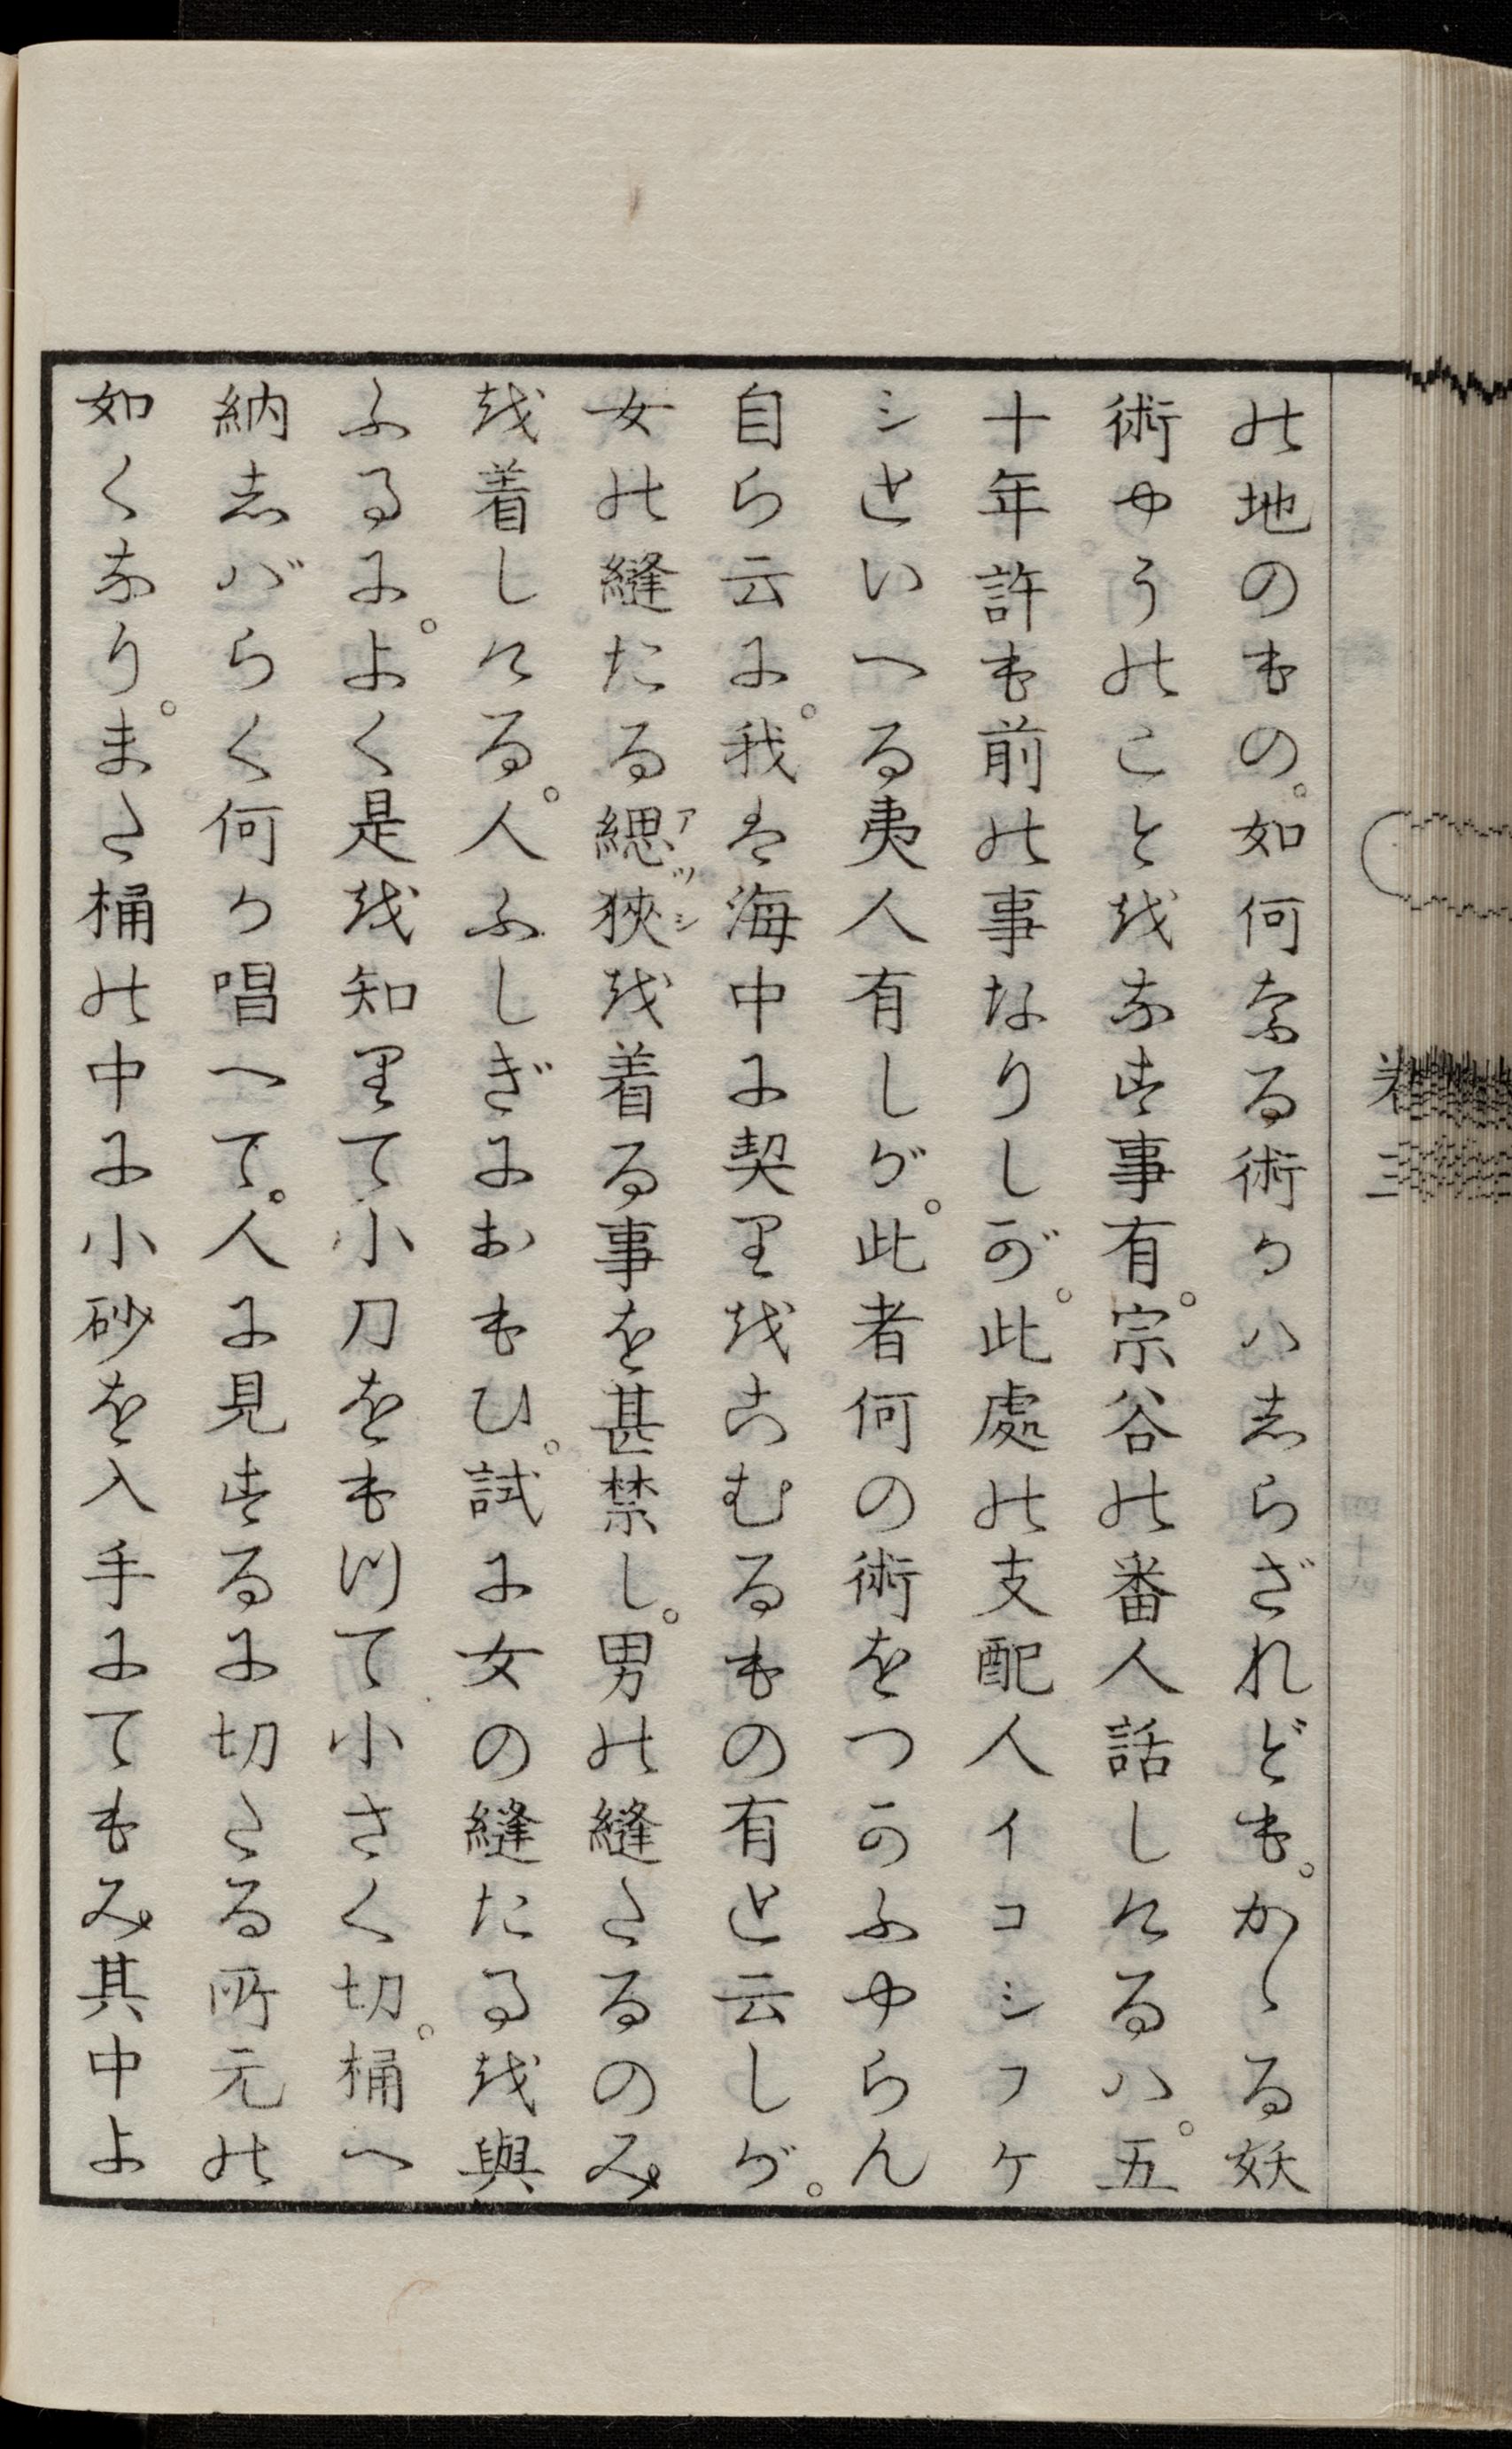 の地のもの。如何なる術かハしらざれども。かゝる妖
術やうのことをなす事有。宗谷の番人話しけるハ。五
十年許も前の事なりしが。此處の支配人イコシフケ
シといへる夷人有しが。此者何の術をつかふやらん
自ら云に。我は海中に契りをこむるもの有と云しが。
女の縫たる緦狹アツシを着る事を甚禁し。男の縫たるのみ
を着しける。人ふしぎにおもひ。試に女の縫たるを與
ふるに。よく是を知りて小刀をもつて小さく切。桶へ
納しばらく何か唱へて。人に見するに切たる所元の
如くなり。また桶の中に小砂を入手にてもみ其中よ
巻三